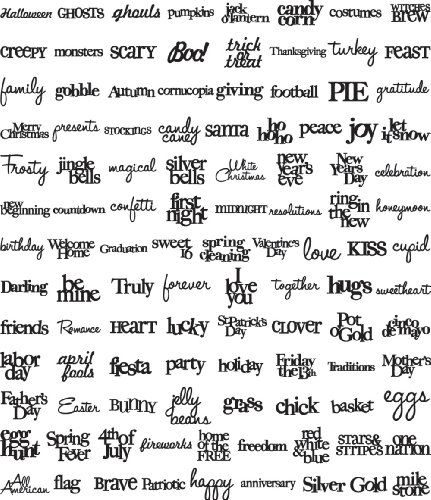 Halloween GHOSTS ghouls pumpkins jack o'lantern candy corn costumes WITCHES BREW
CREEPY monsters SCARY Boo! trick or treat Thanksgiving turkey FEAST
family gobble Autumn cornucopia giving football PIE gratitude
Merry Christmas presents STOCKINGS candy canes santa ho ho ho peace joy let it snow
Frosty jingle bells magical silver bells White Christmas new year's eve New Year's Day celebration
new beginning countdown confetti first night MIDNIGHT resolutions ring in the new honeymoon
birthday Welcome Home Graduation sweet 16 spring cleaning Valentine's Day love KISS cupid
Darling be mine Truly forever I love you together hugs sweetheart
friends Romance HEART lucky St Patrick's Day CLOVER Pot o Gold cinco de mayo
labor day april fools fiesta party holiday Friday the 13th Traditions Mother's Day
Father's Day Easter BUNNY jelly beans grass chick basket eggs
egg Hunt Spring Fever 4th of July fireworks home of the FREE freedom red white & blue STARS & STRIPES one nation
All American flag Brave Patriotic happy anniversary Silver Gold mile stone